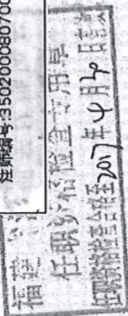 注师编号:35020008070
福建
任职资格检查专用章
任职资格检查合格至2017年4月20日